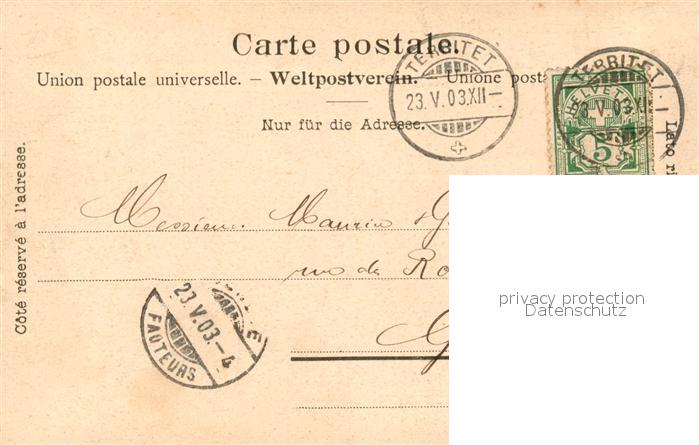 Carte postale.
Union postale universelle. – Weltpostverein. – Unione posta
Nur für die Adresse.
Côté réservé à l'adresse.
Lato ri
TERRITET
23.V.03.XII–
TERRITET
HELVETIA
5
Messieurs Maurice
rue de
23.V.03.–4
FACTEURS
privacy protection
Datenschutz